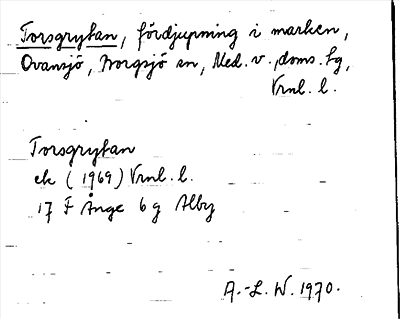 Torsgrytan, fördjupning i marken,
Ovansjö, Borgsjö sn, Med. v., doms. hg,
Vrnl. l.
Torsgrytan
ek (1969) Vrnl. l.
17 F Ånge 6 g Alby
A.-L. W. 1970.